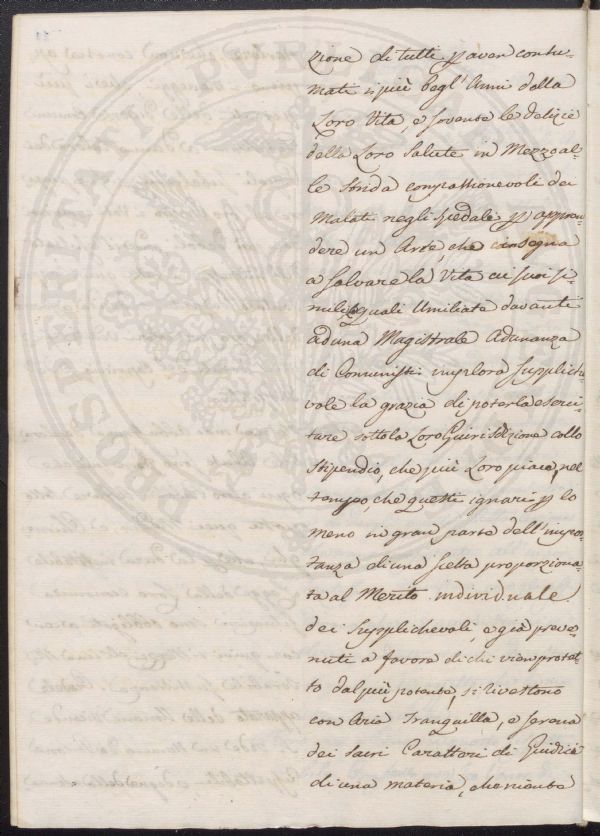 zione di tutti p aver consu-
mati i più begl'Anni della
Loro Vita, e sovente le delizie
della Loro Salute in Mezzo al-
le strida compassionevoli dei
Malati negli Spedale p appren-
dere un Arte, che consegna
a salvare la Vita ai suoi si-
mili quali Umiliate davanti
ad una Magistrale Adunanza
di Comunisti implora Supplich-
vole la grazia di poterla eserci-
tare sotto la Loro Guirisdizione collo
stipendio, che più Loro piace, nel
tempo, che questi ignari p lo
meno in gran parte dell'impor-
tanza di una scelta proporziona-
ta al Merito individuale
dei Supplichevoli, e già preve-
nuti a favore di chi vien protet-
to dal più potente, si rivestono
con Aria Tranquilla, e serena
dei sacri Caratteri di Giudice
di una materia, che niente